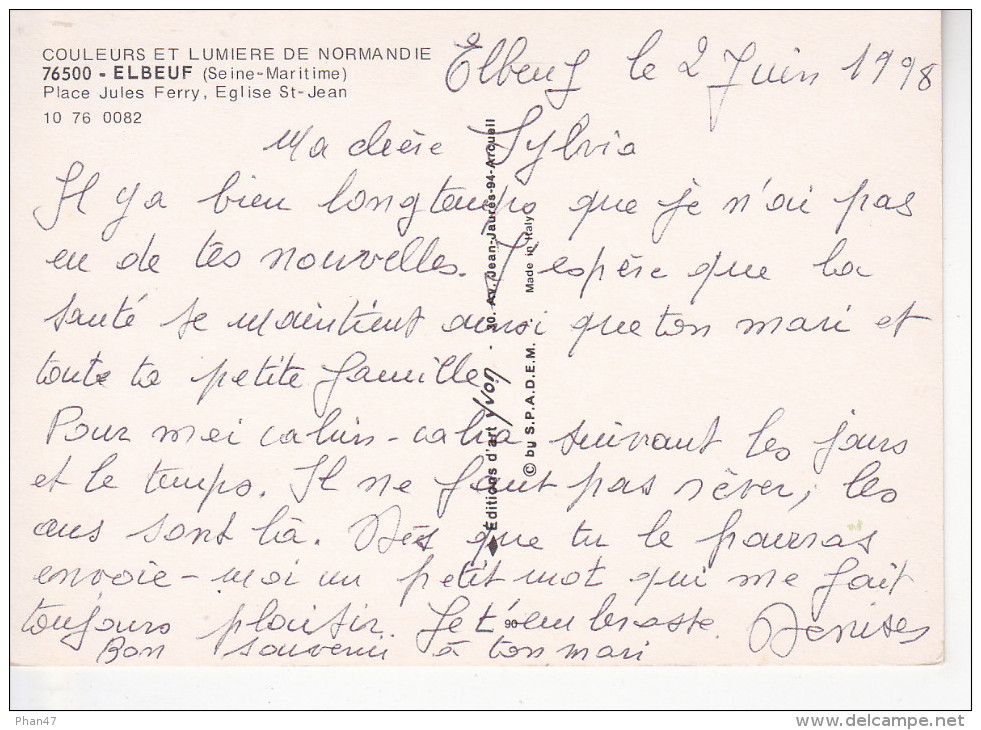 COULEURS ET LUMIERE DE NORMANDIE
76500 - ELBEUF (Seine-Maritime)
Place Jules Ferry, Eglise St-Jean
10 76 0082
Elbeuf le 2 Juin 1998
Ma chère Sylvia
Il y a bien longtemps que je n'ai pas
eu de tes nouvelles. J'espère que la
santé se maintient ainsi que ton mari et
toute ta petite famille
Pour moi cahin-caha suivant les jours
et le temps. Il ne faut pas rêver, les
ans sont là. Dès que tu le pourras
envoie-moi un petit mot qui me fait
toujours plaisir. Je t'embrasse. Denise
Bon souvenir à ton mari
Éditions d'art Yvon - 30, Av. Jean-Jaurès-94-Arcueil
© by S.P.A.D.E.M. - Made in Italy
90
Phan47
www.delcampe.net